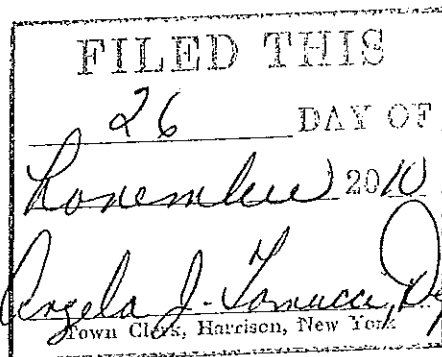 FILED THIS
26 DAY OF
November 2010
Angela J.
Town Clerk, Harrison, New York